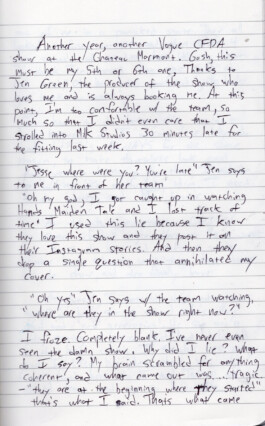 Another year, another Vogue CFDA
show at the Chateau Marmont. Gosh, this
must be my 5th or 6th one, Thanks to
Jen Green, the producer of the show who
loves me and is always booking me. At this
point, I'm too comfortable w/ the team, so
much so that I didn't even care that I
strolled into Milk Studios 30 minutes late for
the fitting last week.
"Jesse where were you? You're late" Jen says
to me in front of her team
"Oh my god, I got caught up in watching
Hands Maiden Tale and I lost track of
time" I used this lie because I know
they love this show and they post it on
their Instagram stories. And then they
drop a single question that annihilated my
cover.
"Oh yes" Jen says w/ the team watching,
"where are they in the show right now?"
I froze. Completely blank. I've never even
seen the damn show. Why did I lie? What
do I say? My brain scrambled for anything
coherent, and what came out was... tragic.
- "they are at the beginning where they started"
that's what I said. Thats what came